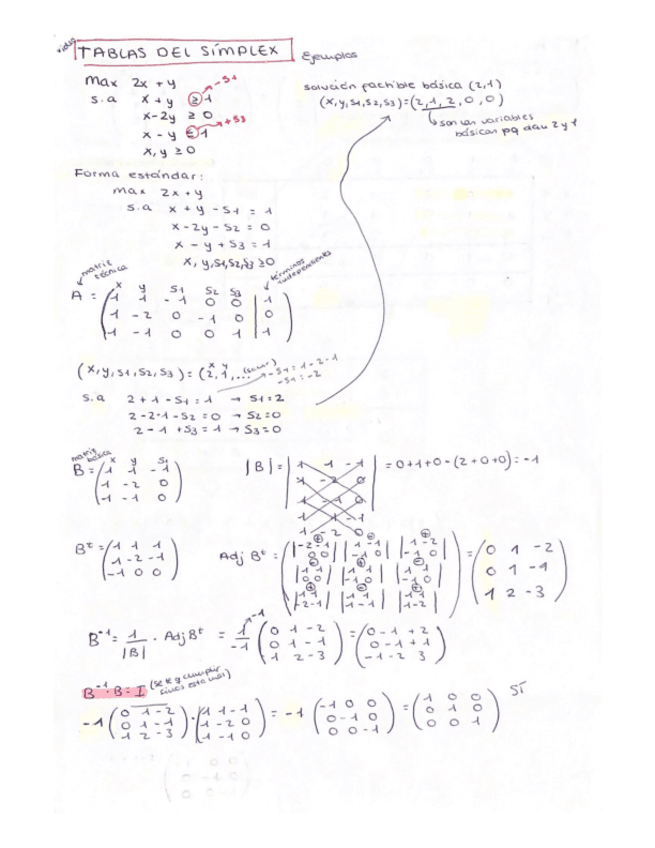 video
TABLAS DEL SÍMPLEX
Ejemplos
max 2x + y
s.a x + y ≥ 1 → -S1
x - 2y ≥ 0
x - y ≤ 1 → +S3
x, y ≥ 0
solución factible básica (2,1)
(x,y,S1,S2,S3)=(2,1,2,0,0)
son var variables
básicas pq dan 2 y 1
Forma estándar:
max 2x + y
s.a x + y - S1 = 1
x - 2y - S2 = 0
x - y + S3 = 1
x, y, S1, S2, S3 ≥ 0
matriz técnica
términos independientes
x y S1 S2 S3
A = ( 1 1 -1 0 0 | 1
1 -2 0 -1 0 | 0
1 -1 0 0 1 | 1 )
x y
(x,y,S1,S2,S3) = (2,1,...
-S1 = 1-2-1
-S1 = -2
s.a 2 + 1 - S1 = 1 → S1 = 2
2 - 2·1 - S2 = 0 → S2 = 0
2 - 1 + S3 = 1 → S3 = 0
matriz básica
x y S1
B = ( 1 1 -1
1 -2 0
1 -1 0 )
|B| = | 1 1 -1
1 -2 0
1 -1 0
1 1 -1
1 -2 0 | = 0+1+0-(2+0+0) = -1
Bᵗ = ( 1 1 1
1 -2 -1
-1 0 0 )
Adj Bᵗ = ( |-2 -1 / 0 0| |1 -1 / -1 0| |1 -2 / -1 0|
|1 1 / 0 0| |1 1 / -1 0| |1 1 / -1 0|
|1 1 / -2 -1| |1 1 / 1 -1| |1 1 / 1 -2| ) = ( 0 1 -2
0 1 -1
1 2 -3 )
B⁻¹ = 1/|B| · Adj Bᵗ = 1/-1 → -1 ( 0 1 -2
0 1 -1
1 2 -3 ) = ( 0 -1 +2
0 -1 +1
-1 -2 3 )
B⁻¹ · B = I
-1 ( 0 1 -2
0 1 -1
1 2 -3 ) · ( 1 1 -1
1 -2 0
1 -1 0 ) = -1 ( -1 0 0
0 -1 0
0 0 -1 ) = ( 1 0 0
0 1 0
0 0 1 ) SÍ